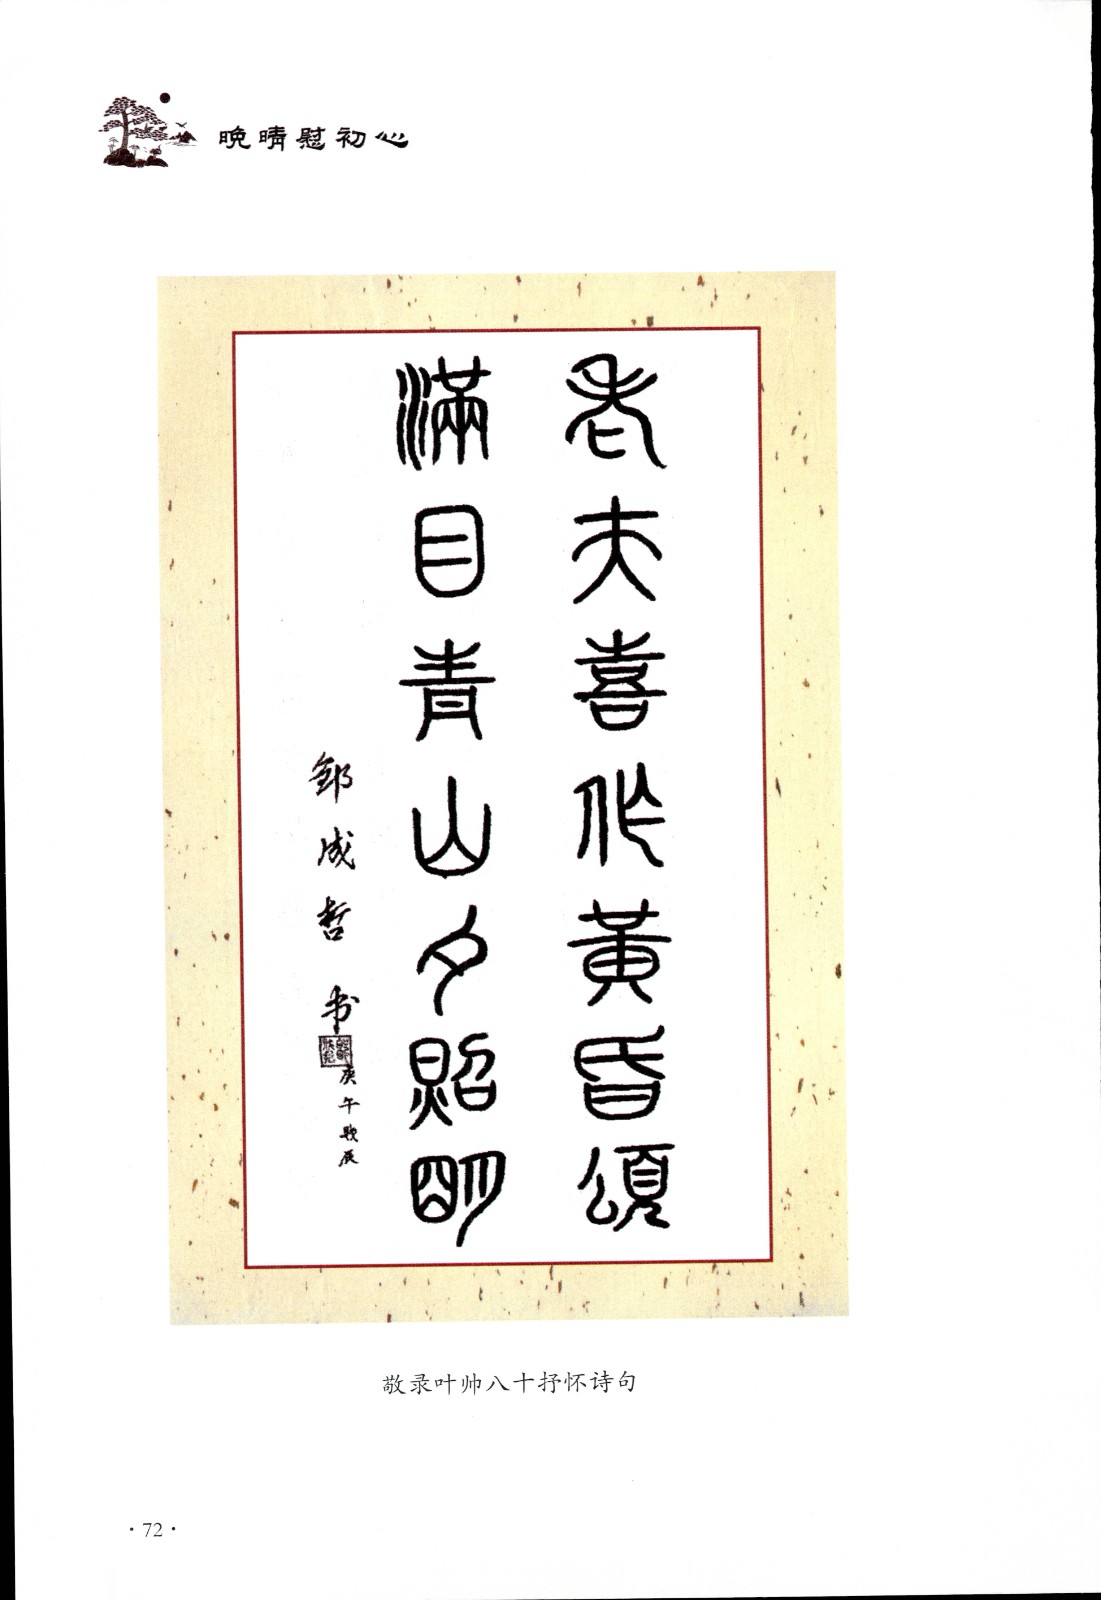 晚晴慰初心
老夫喜作黄昏頌
滿目青山夕照明
邹成哲 书
庚午
敬录叶帅八十抒怀诗句
·72·